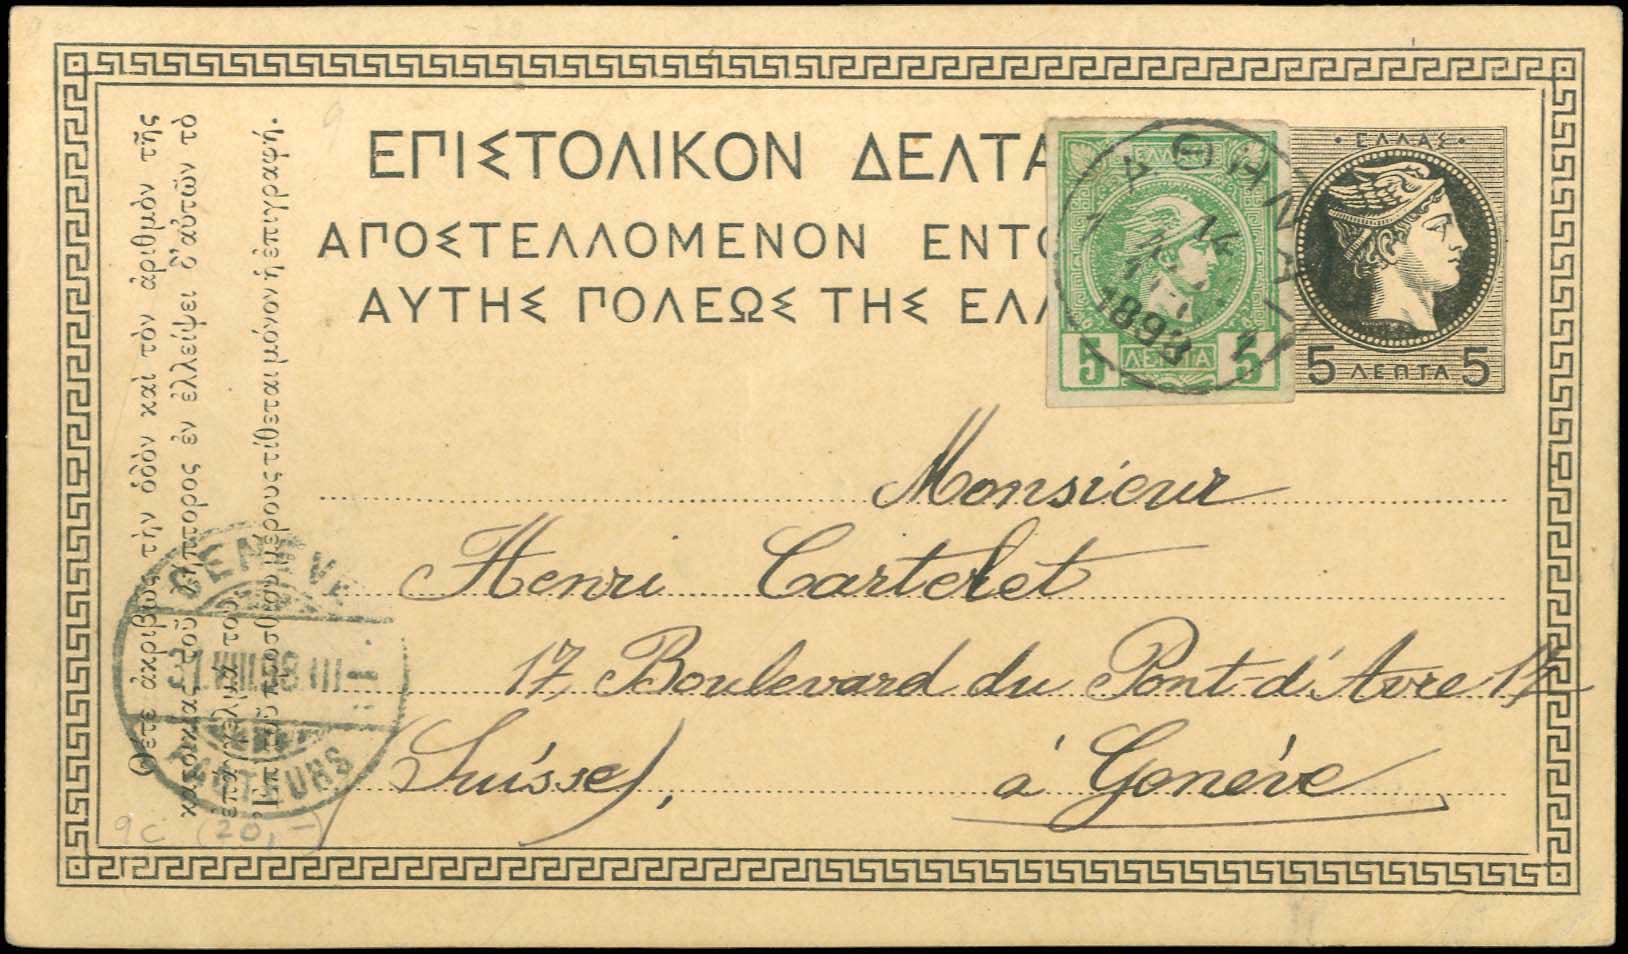 ΕΠΙΣΤΟΛΙΚΟΝ ΔΕΛΤΑ
ΑΠΟΣΤΕΛΛΟΜΕΝΟΝ ΕΝΤΟ
ΑΥΤΗΣ ΠΟΛΕΩΣ ΤΗΣ ΕΛΛ
ΑΘΗΝΑΙ
14
1898
5 ΛΕΠΤΑ 5
·ΕΛΛΑΣ·
5 ΛΕΠΤΑ 5
Monsieur
Henri Cartelet
17, Boulevard du Pont-d'Arve 17
(Suisse), à Genève
Θέτε ἀκριβῶς τὴν ὁδὸν καὶ τὸν ἀριθμὸν τῆς
κατοικίας τοῦ λήπτορος ἐν ἐλλείψει δ'αὐτῶν τὸ
ἐπάγγελμά του.
Ἐπὶ τοῦ προσθίου μέρους τίθεται μόνον ἡ ἐπιγραφή.
GENÈVE
VIII.98 III
FACTEURS
9c (20,-)